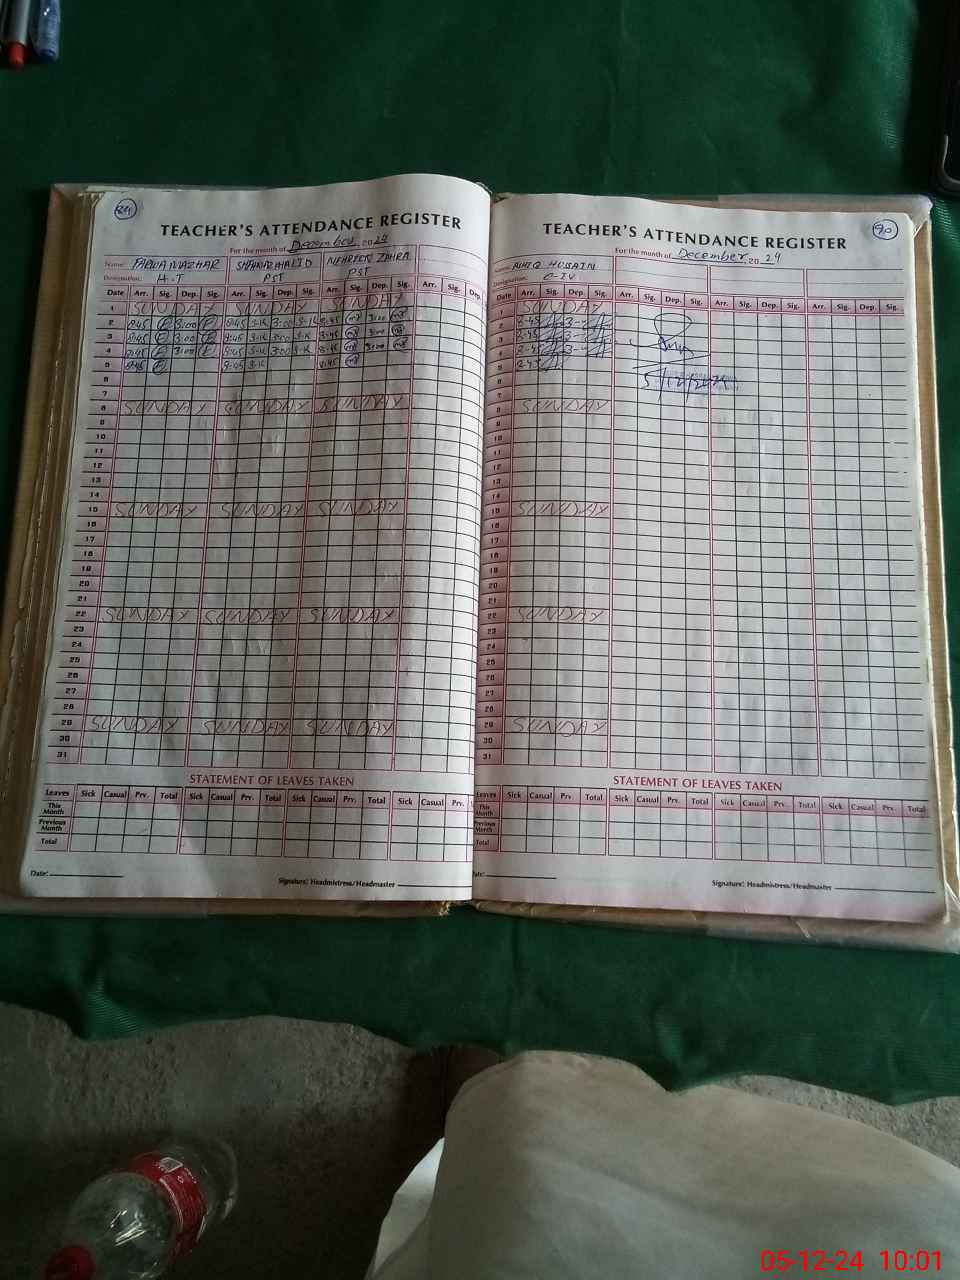 TEACHER'S ATTENDANCE REGISTER
For the month of December 2024
Name: MAZHAR KHALID ZAHRA
Designation: H.T PST PST
Date Arr. Sig. Dep. Sig. Arr. Sig. Dep. Sig. Arr. Sig. Dep. Sig. Arr. Sig. Dep.
1 SUNDAY SUNDAY SUNDAY
2 8:45 3:00 8:45 3:00 8:45 3:00
3 8:45 3:00 8:45 3:00 8:45 3:00
4 8:45 3:00 8:45 3:00 8:45 3:00
5 8:45 8:45 8:45
6
7
8 SUNDAY SUNDAY SUNDAY
9
10
11
12
13
14
15 SUNDAY SUNDAY SUNDAY
16
17
18
19
20
21
22 SUNDAY SUNDAY SUNDAY
23
24
25
26
27
28
29 SUNDAY SUNDAY SUNDAY
30
31
STATEMENT OF LEAVES TAKEN
Leaves Sick Casual Prv. Total Sick Casual Prv. Total Sick Casual Prv. Total Sick Casual Prv.
This Month
Previous Month
Total
Date:
Signature: Headmistress/Headmaster
90
TEACHER'S ATTENDANCE REGISTER
For the month of December 2024
Name: HUSSAIN
Designation: C-IV
Date Arr. Sig. Dep. Sig. Arr. Sig. Dep. Sig. Arr. Sig. Dep. Sig. Arr. Sig. Dep. Sig.
1 SUNDAY
2 8-45 3-
3 8-45 3-
4 8-45 3-
5 8-45
5/12/2024
6
7
8 SUNDAY
9
10
11
12
13
14
15 SUNDAY
16
17
18
19
20
21
22 SUNDAY
23
24
25
26
27
28
29 SUNDAY
30
31
STATEMENT OF LEAVES TAKEN
Leaves Sick Casual Prv. Total Sick Casual Prv. Total Sick Casual Prv. Total Sick Casual Prv. Total
This Month
Previous Month
Total
Signature: Headmistress/Headmaster
05-12-24 10:01